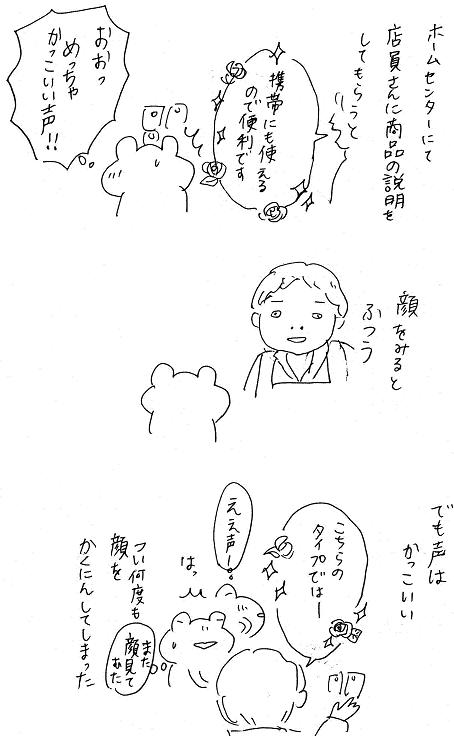 ホームセンターにて
店員さんに商品の説明を
してもらうと
携帯にも使える
ので便利です
おおっ
めっちゃ
かっこいい声!!
顔をみると
ふつう
でも声は
かっこいい
こちらの
タイプではー
ええ声ー!
はっ
つい何度も
顔を
かくにんしてしまった
また
顔見て
もた